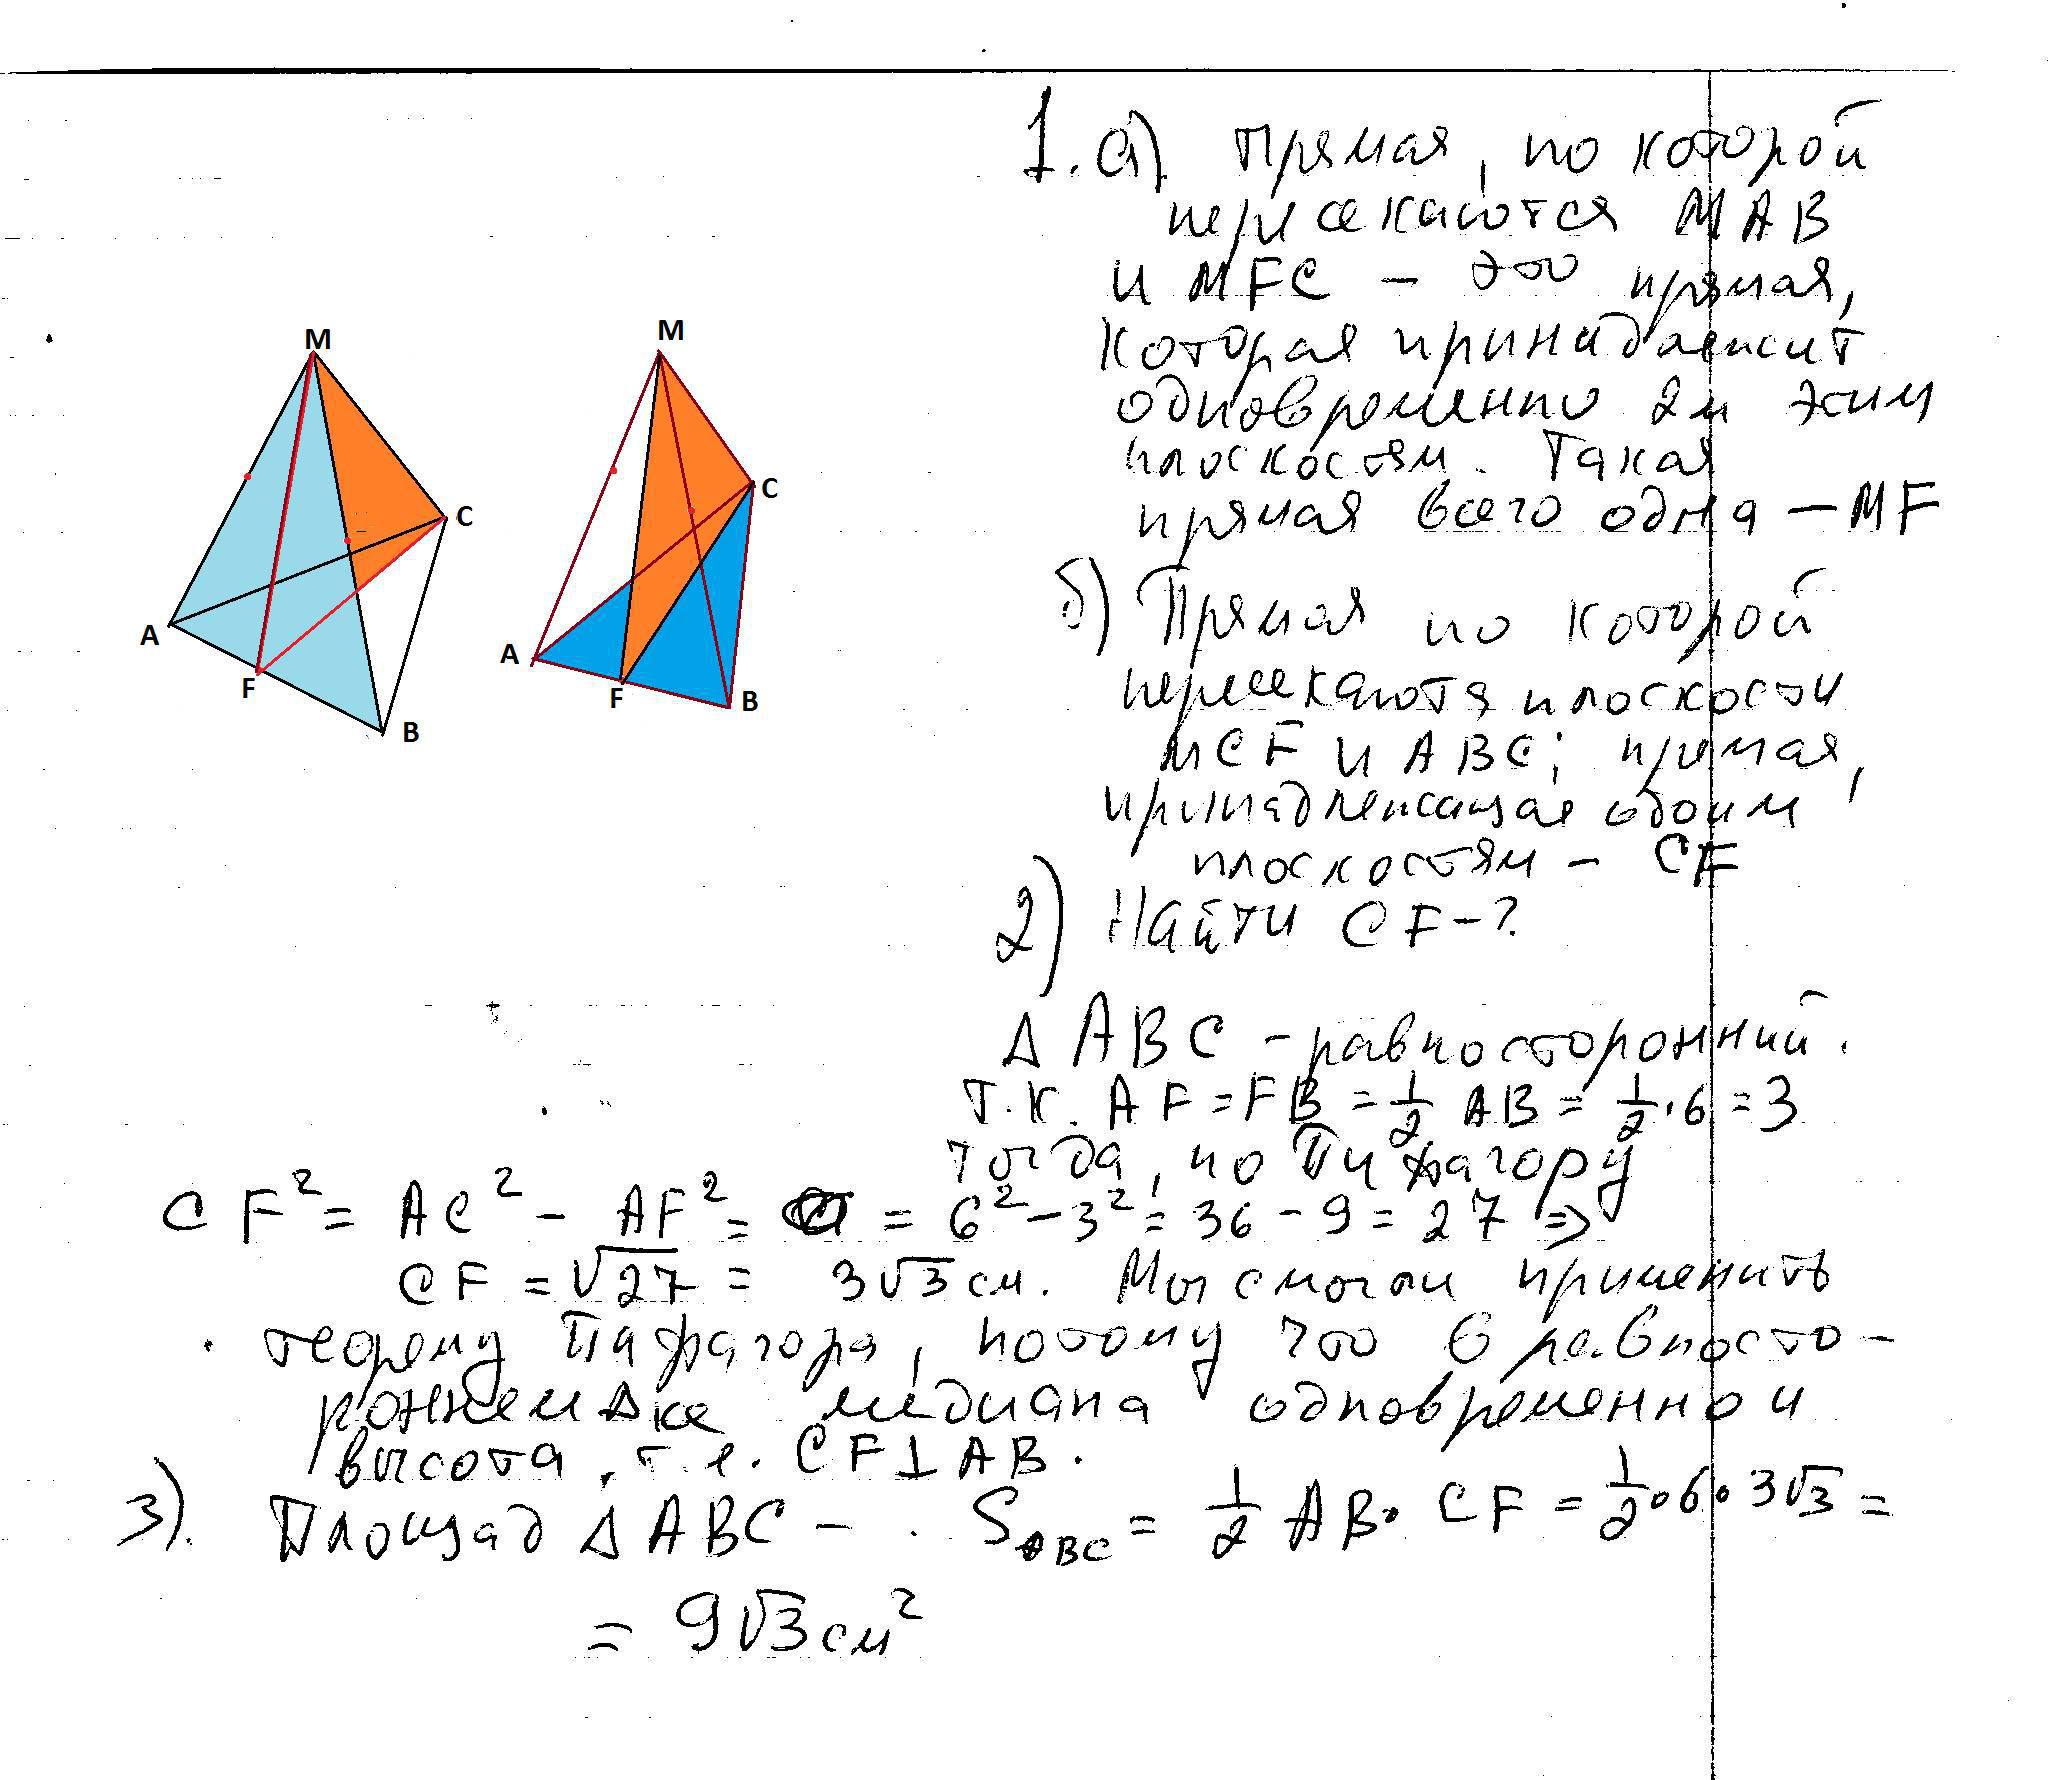 M
M
C
C
A
A
F
F
B
B
1. а) Прямая, по которой
пересекаются MAB
и MFC – это прямая,
которая принадлежит
одновременно 2м этим
плоскостям. Такая
прямая всего одна – MF
б) Прямая по которой
пересекаются плоскости
MCF и ABC; прямая,
принадлежащая обоим
плоскостям – CF
2) Найти CF-?
Δ ABC - равносторонний.
Т.К. AF = FB = 1/2 AB = 1/2 · 6 = 3
тогда, по Пифагору
CF² = AC² - AF² = = 6² - 3² = 36 - 9 = 27 =>
CF = √27 = 3√3 см. Мы смогли применить
теорему Пифагора, потому что в равносто-
роннем Δке медиана одновременно и
высота, т.е. CF⊥AB.
3). Площад Δ ABC – S ABC = 1/2 AB · CF = 1/2 · 6 · 3√3 =
= 9√3 см²